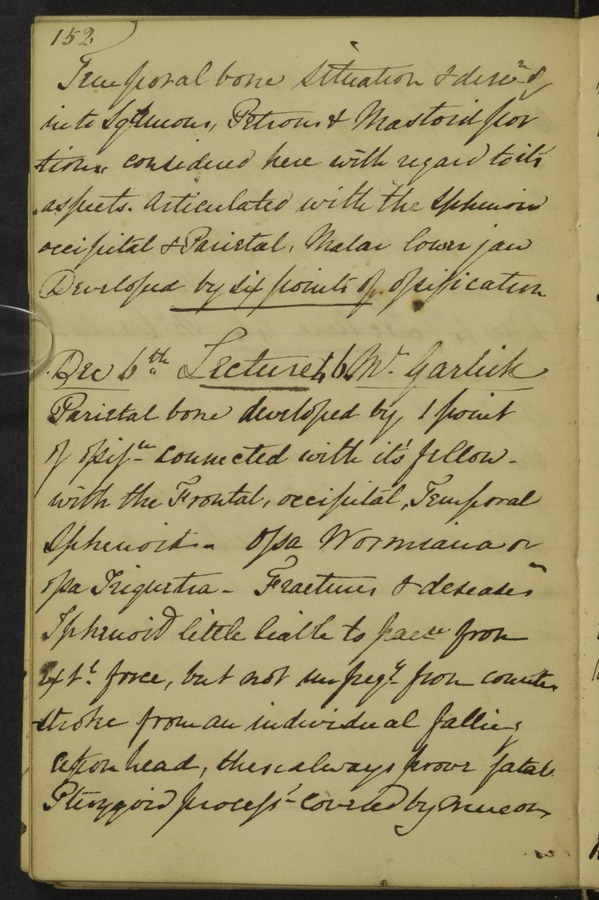 152
Temporal bone situation & descn of
into Sqmous, Petrous & Mastoid por
tions considered here with regard to its
aspects. Articulated with the Sphenoid
occipital & Parietal, Malar lower jaw
Developed by six points of ossification
Dec 6th Lecture 46 Mr Garlick
Parietal bone developed by 1 point
of ossifn connected with it's fellow-
with the Frontal, occipital, Temporal
Sphenoid - Ossa Wormiana or
ossa Triquetra - Fractures & deseases
Sphenoid little liable to from
Ext. force, but not unfreqy from counter
stroke from an individual falling
upon head, these always prove fatal
Pterygoid process covered by mucous